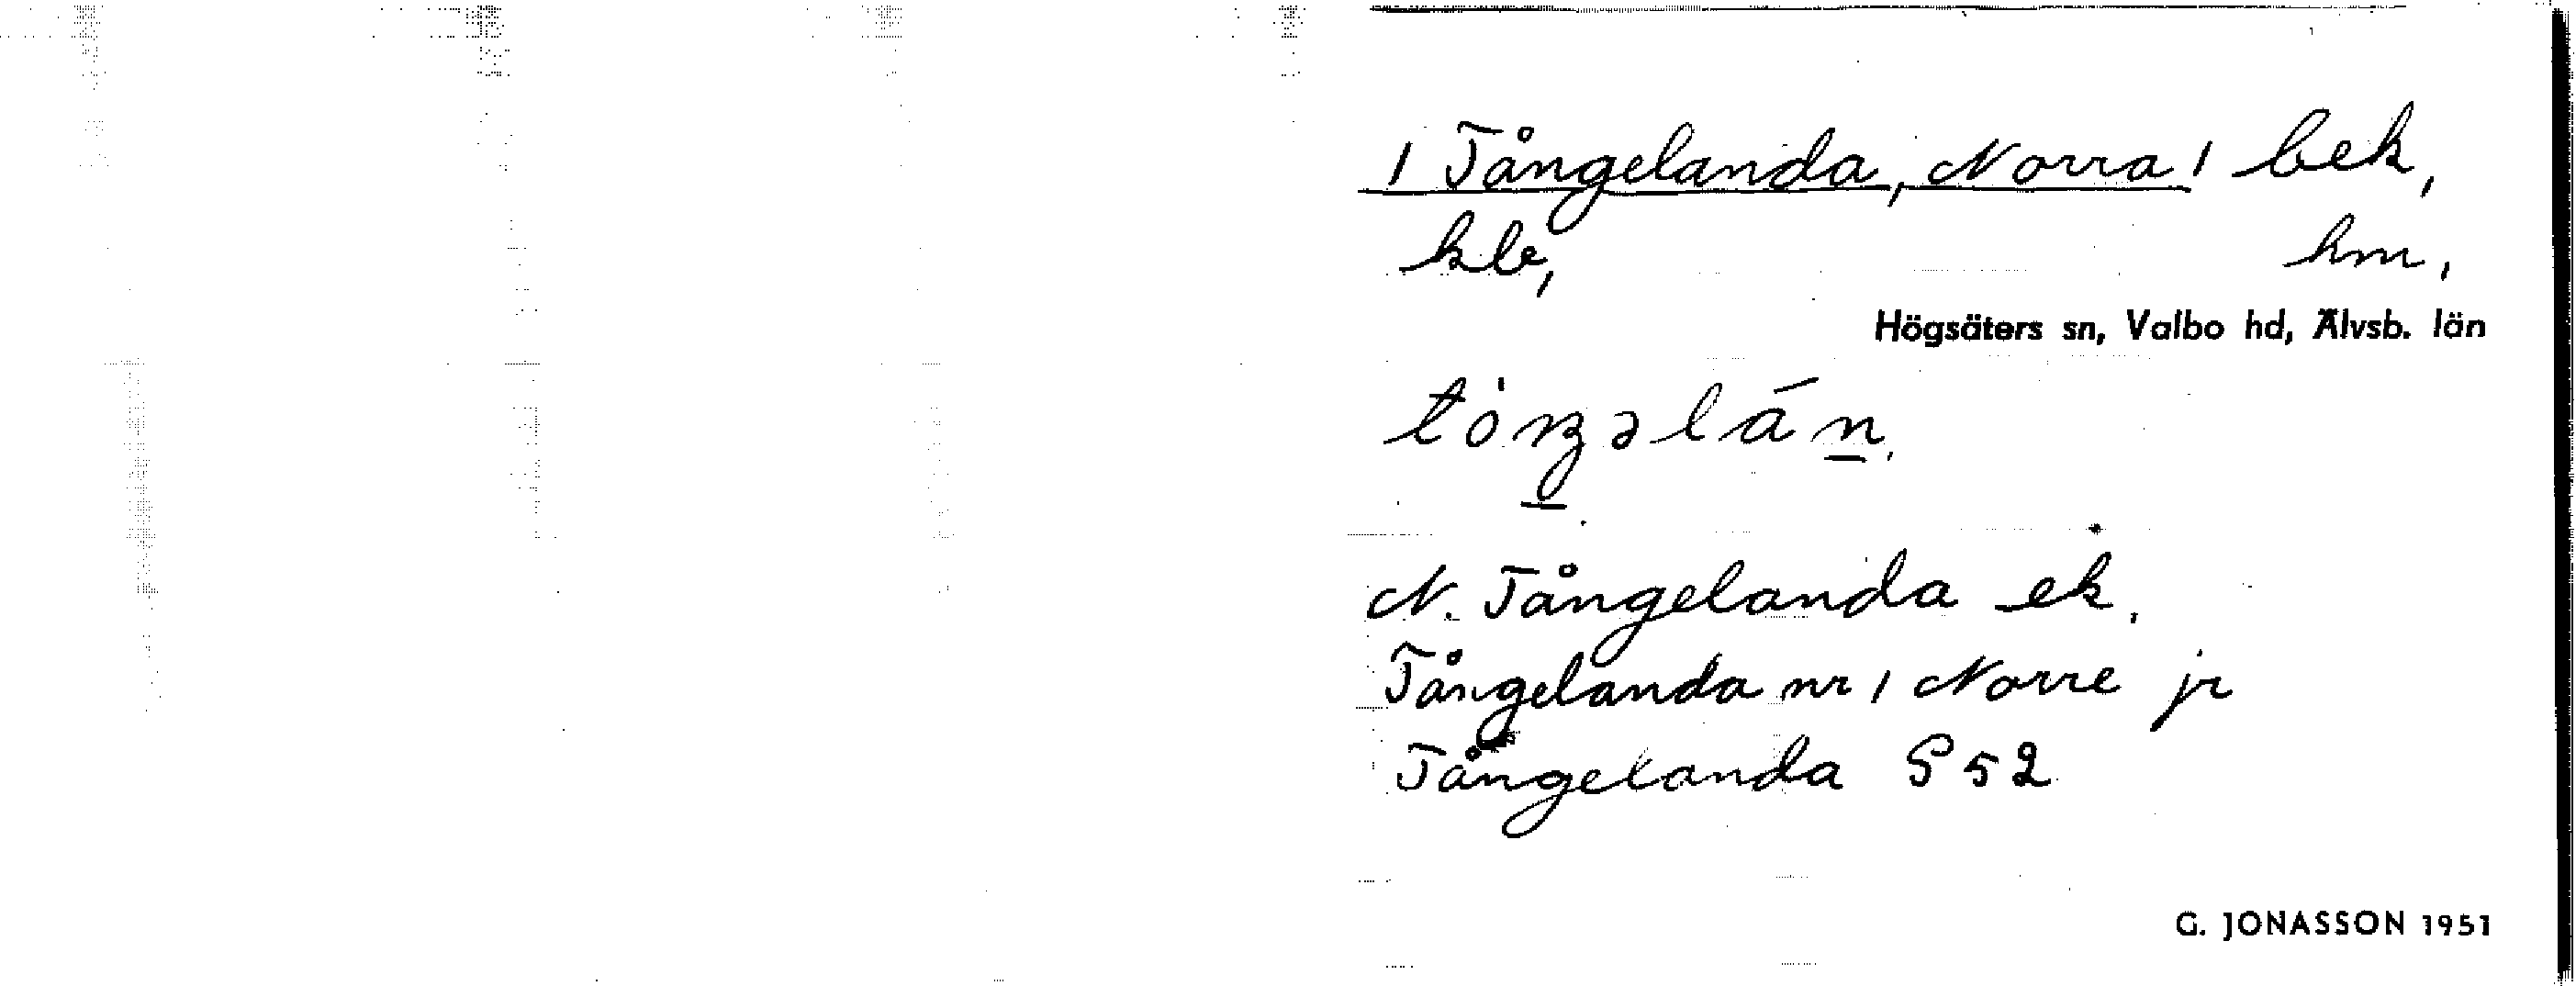 / Tångelanda, Norra / bek,
hm,
Högsäters sn, Valbo hd, Älvsb. län
N. Tångelanda ek.
Tångelanda nr 1 Norre jr
Tångelanda S 52
G. JONASSON 1951